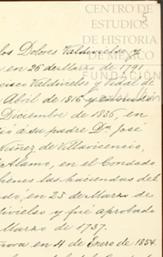 CENTRO DE
ESTUDIOS
DE HISTORIA
DE MÉXICO
FUNDACIÓN
los Dolores Valdivielso y
en 26 de Marzo de 1791
cisco Valdivielso y Vidal de
Abril de 1816 y
Diciembre de 1836, en
ció a su padre Dn José
Núñez de Villavicencio,
ablamo, en el Condado
bienes las haciendas del
do, en 23 de Marzo de
ivielso y fué aprobada
Marzo de 1737.
ova en 4 de Enero de 1854.